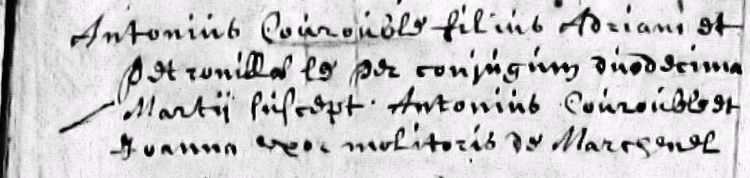 Antonius Couroúble filius Adriani et
Petronillæ le per conjugum duodecima
Martij suscept. Antonius Couroúble et
Joanna uxor molitoris de Marchenel